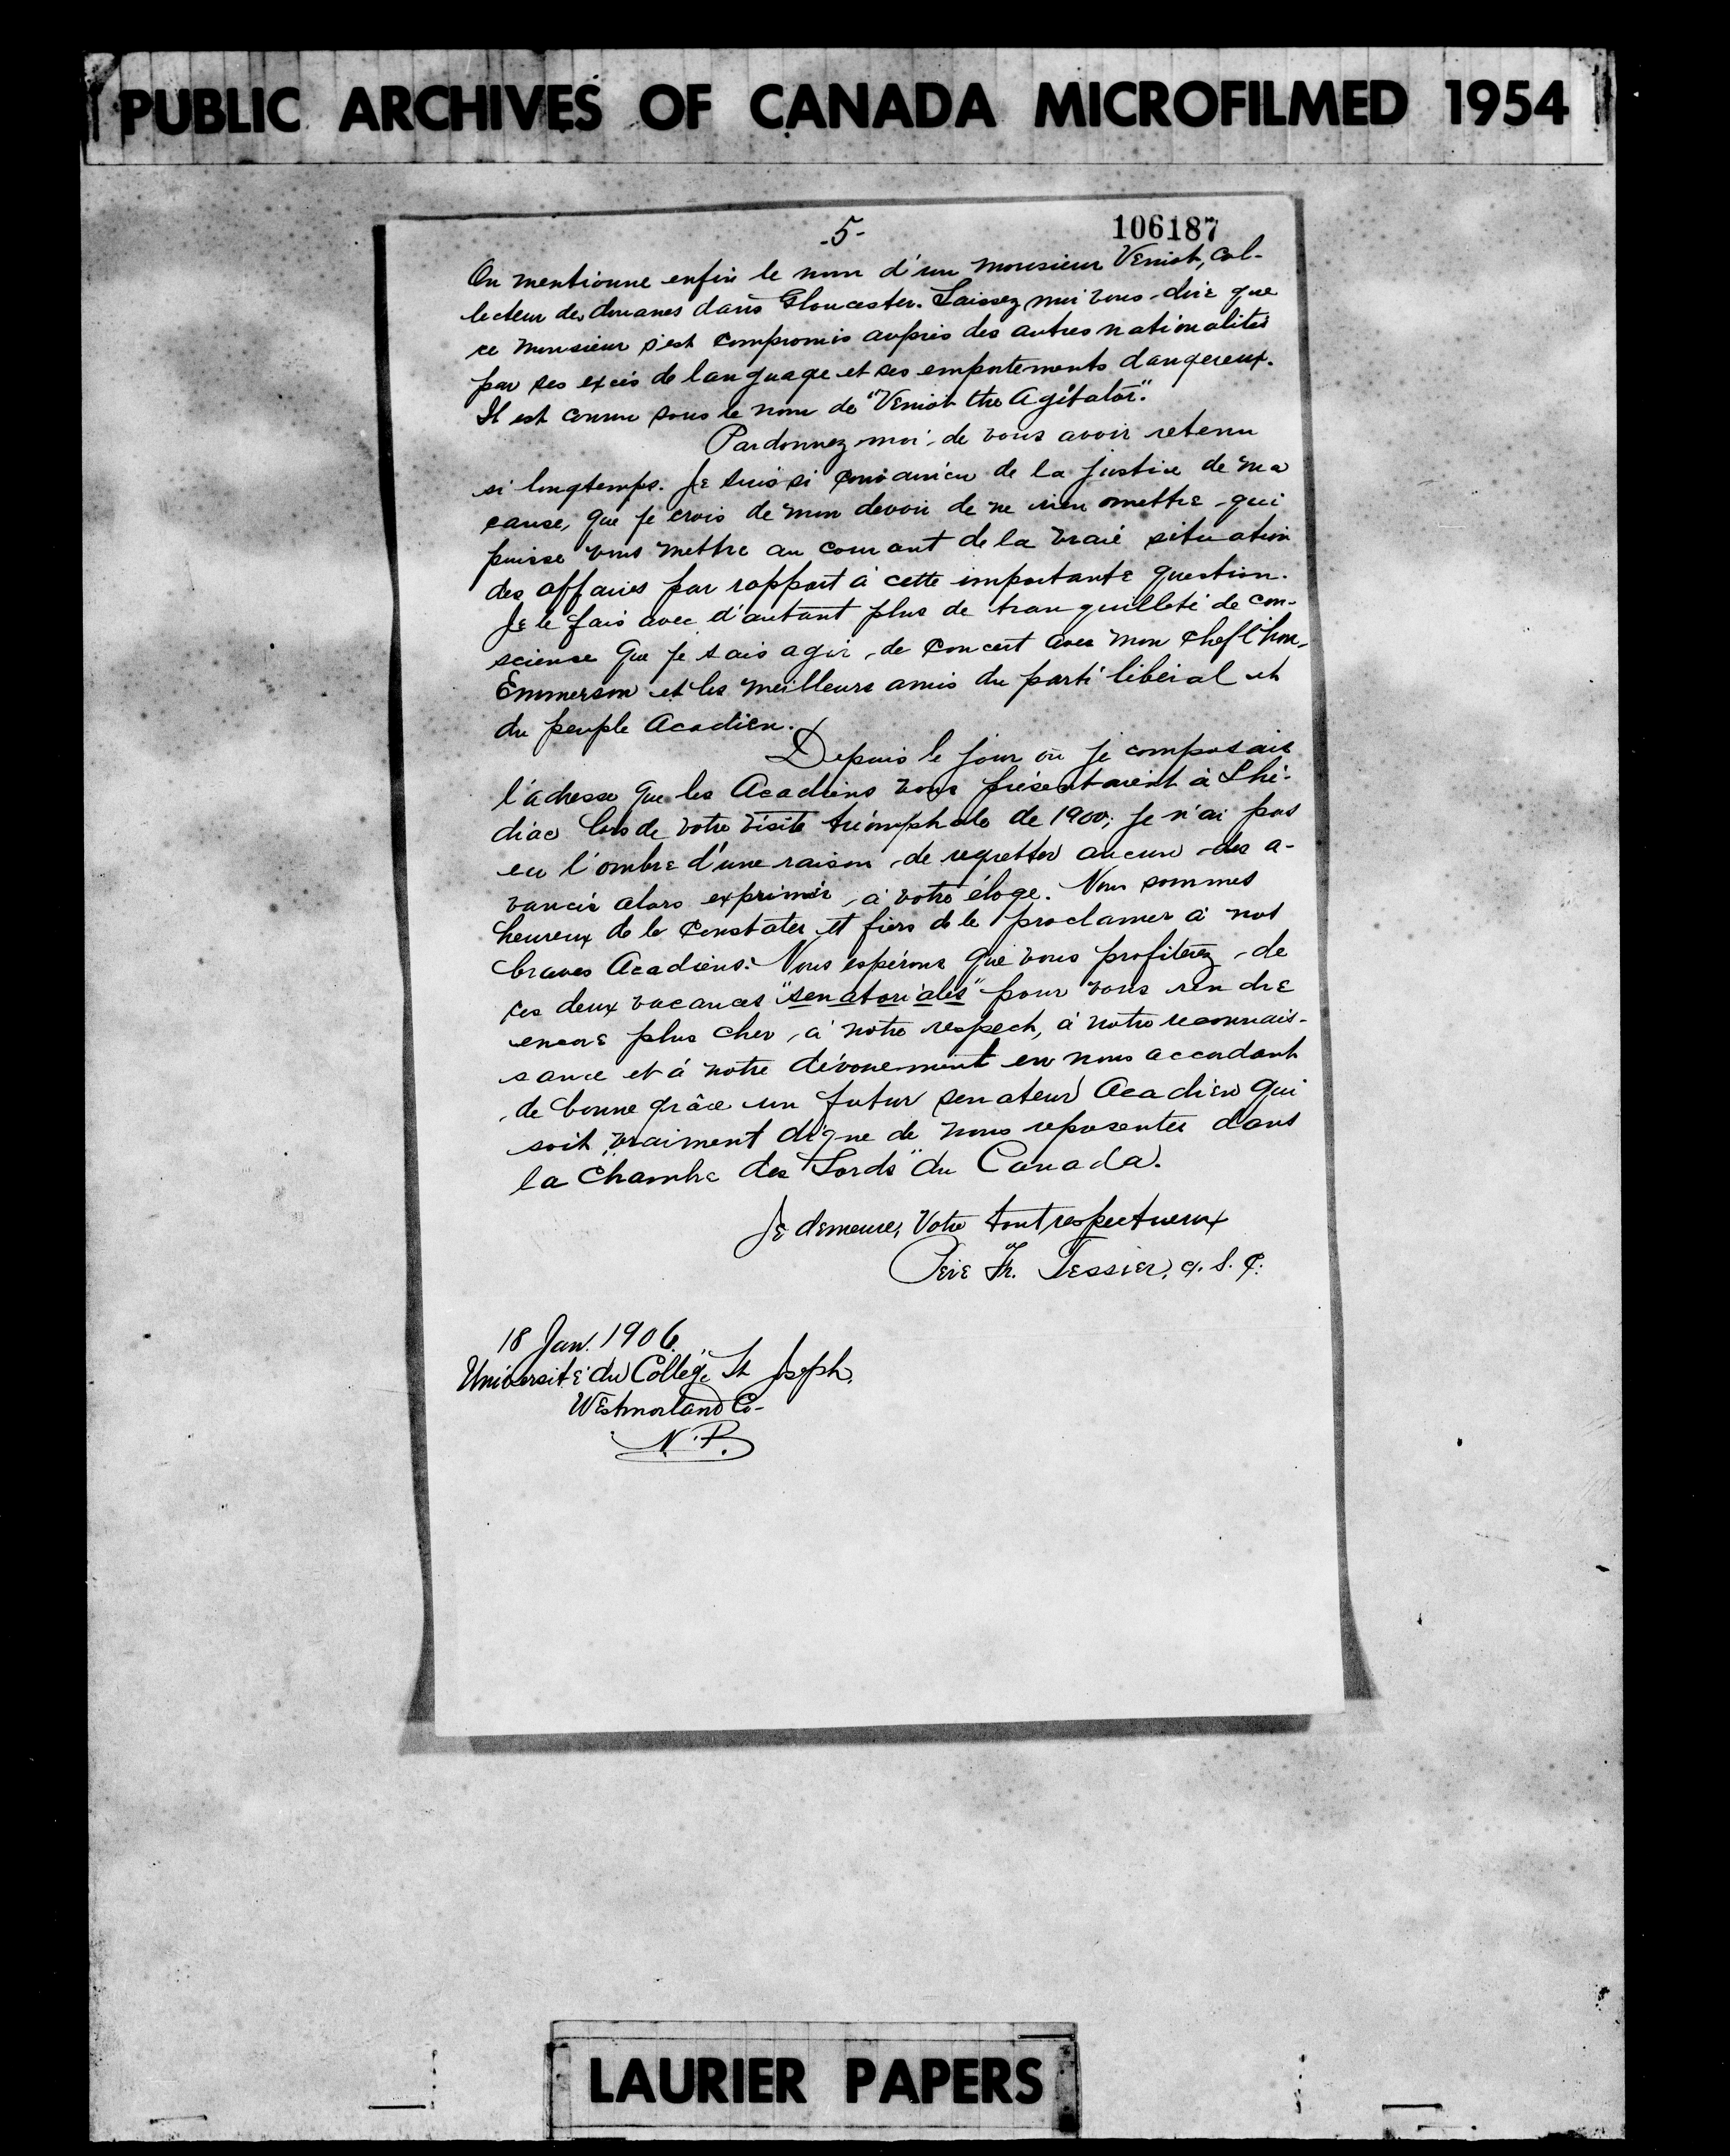 PUBLIC ARCHIVES OF CANADA MICROFILMED 1954
-5-
106187
On mentionne enfin le nom d'un monsieur Veniot, col-
lecteur des douanes dans Gloucester. Laissez moi vous dire que
ce monsieur s'est compromis auprès des autres nationalités
par ses excès de language et ses emportements dangereux.
Il est connu sous le nom de "Veniot the Agitator".
Pardonnez moi de vous avoir retenu
si longtemps. Je suis si convaincu de la justice de ma
cause, que je crois de mon devoir de ne rien omettre qui
puisse vous mettre au courant de la vraie situation
des affaires par rapport à cette importante question.
Je le fais avec d'autant plus de tranquilleté de con-
science que je sais agir de concert avec mon chef l'hon.
Emmerson et les meilleurs amis du parti libéral et
du peuple Acadien.
Depuis le jour où je composais
l'adresse que les Acadiens vous présentaient à Shé-
diac lors de votre visite triomphale de 1900, je n'ai pas
eu l'ombre d'une raison de regretter aucun des a-
vancés alors exprimés à votre éloge. Nous sommes
heureux de le constater et fiers de le proclamer à nos
braves Acadiens. Nous espérons que vous profiterez de
ces deux vacances "senatoriales" pour vous rendre
encore plus cher à notre respect, à notre reconnais-
sance et à notre dévouement en nous accordant
de bonne grâce un futur senateur Acadien qui
soit vraiment digne de nous reposenter dans
la "Chambre des Lords" du Canada.
Je demeure, Votre tout respectueux
Père Fr. Tessier, c. s. c.
18 Jan. 1906.
Université du Collège St Joseph,
Westmorland Co-
N. B.
LAURIER PAPERS